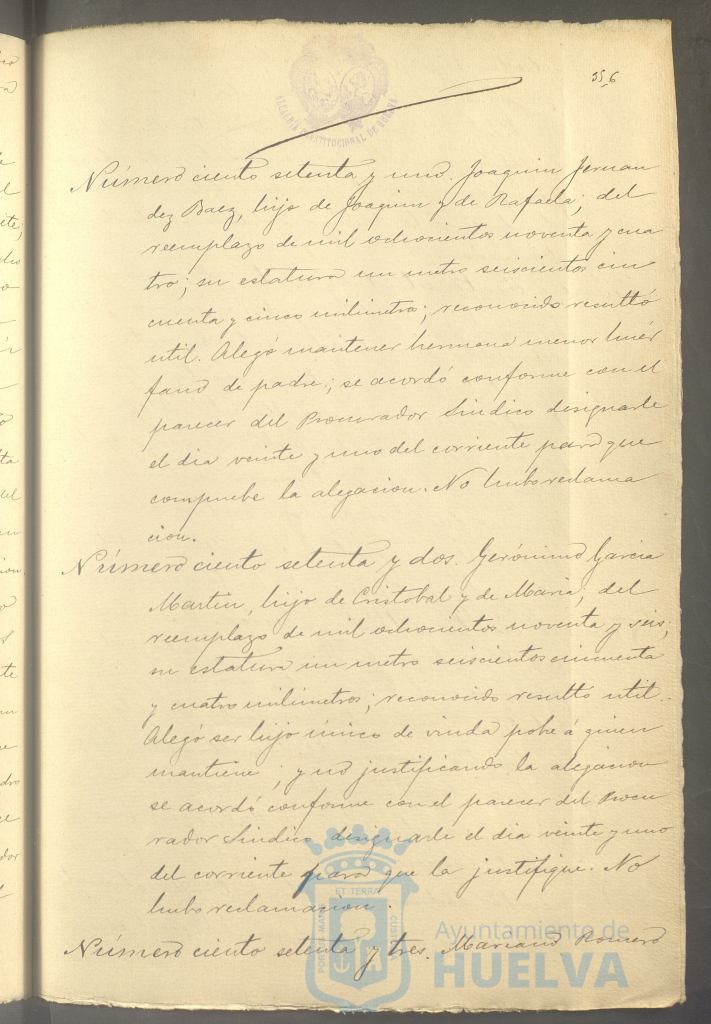 ALCALDIA CONSTITUCIONAL DE HUELVA
356
Número ciento setenta y uno. Joaquin Fernan
dez Baez, hijo de Joaquin y de Rafaela; del
reemplazo de mil ochocientos noventa y cua
tro; su estatura un metro seiscientos cin
cuenta y cinco milimetros; reconocido resultó
util. Alegó mantener hermano menor huér
fano de padre; se acordó conforme con el
parecer del Procurador Sindico designarle
el dia veinte y uno del corriente para que
compruebe la alegacion. No hubo reclama
cion.
Número ciento setenta y dos. Gerónimo Garcia
Martin, hijo de Cristobal y de Maria; del
reemplazo de mil ochocientos noventa y seis;
su estatura un metro seiscientos cincuenta
y cuatro milimetros; reconocido resultó util.
Alegó ser hijo único de viuda pobre á quien
mantiene; y no justificando la alegacion
se acordó conforme con el parecer del Procu
rador Sindico designarle el dia veinte y uno
del corriente para que la justifique. No
hubo reclamacion.
Número ciento setenta y tres. Mariano Romero
PORTUS MARIS ET TERRAE CUSTODIA
Ayuntamiento de
HUELVA